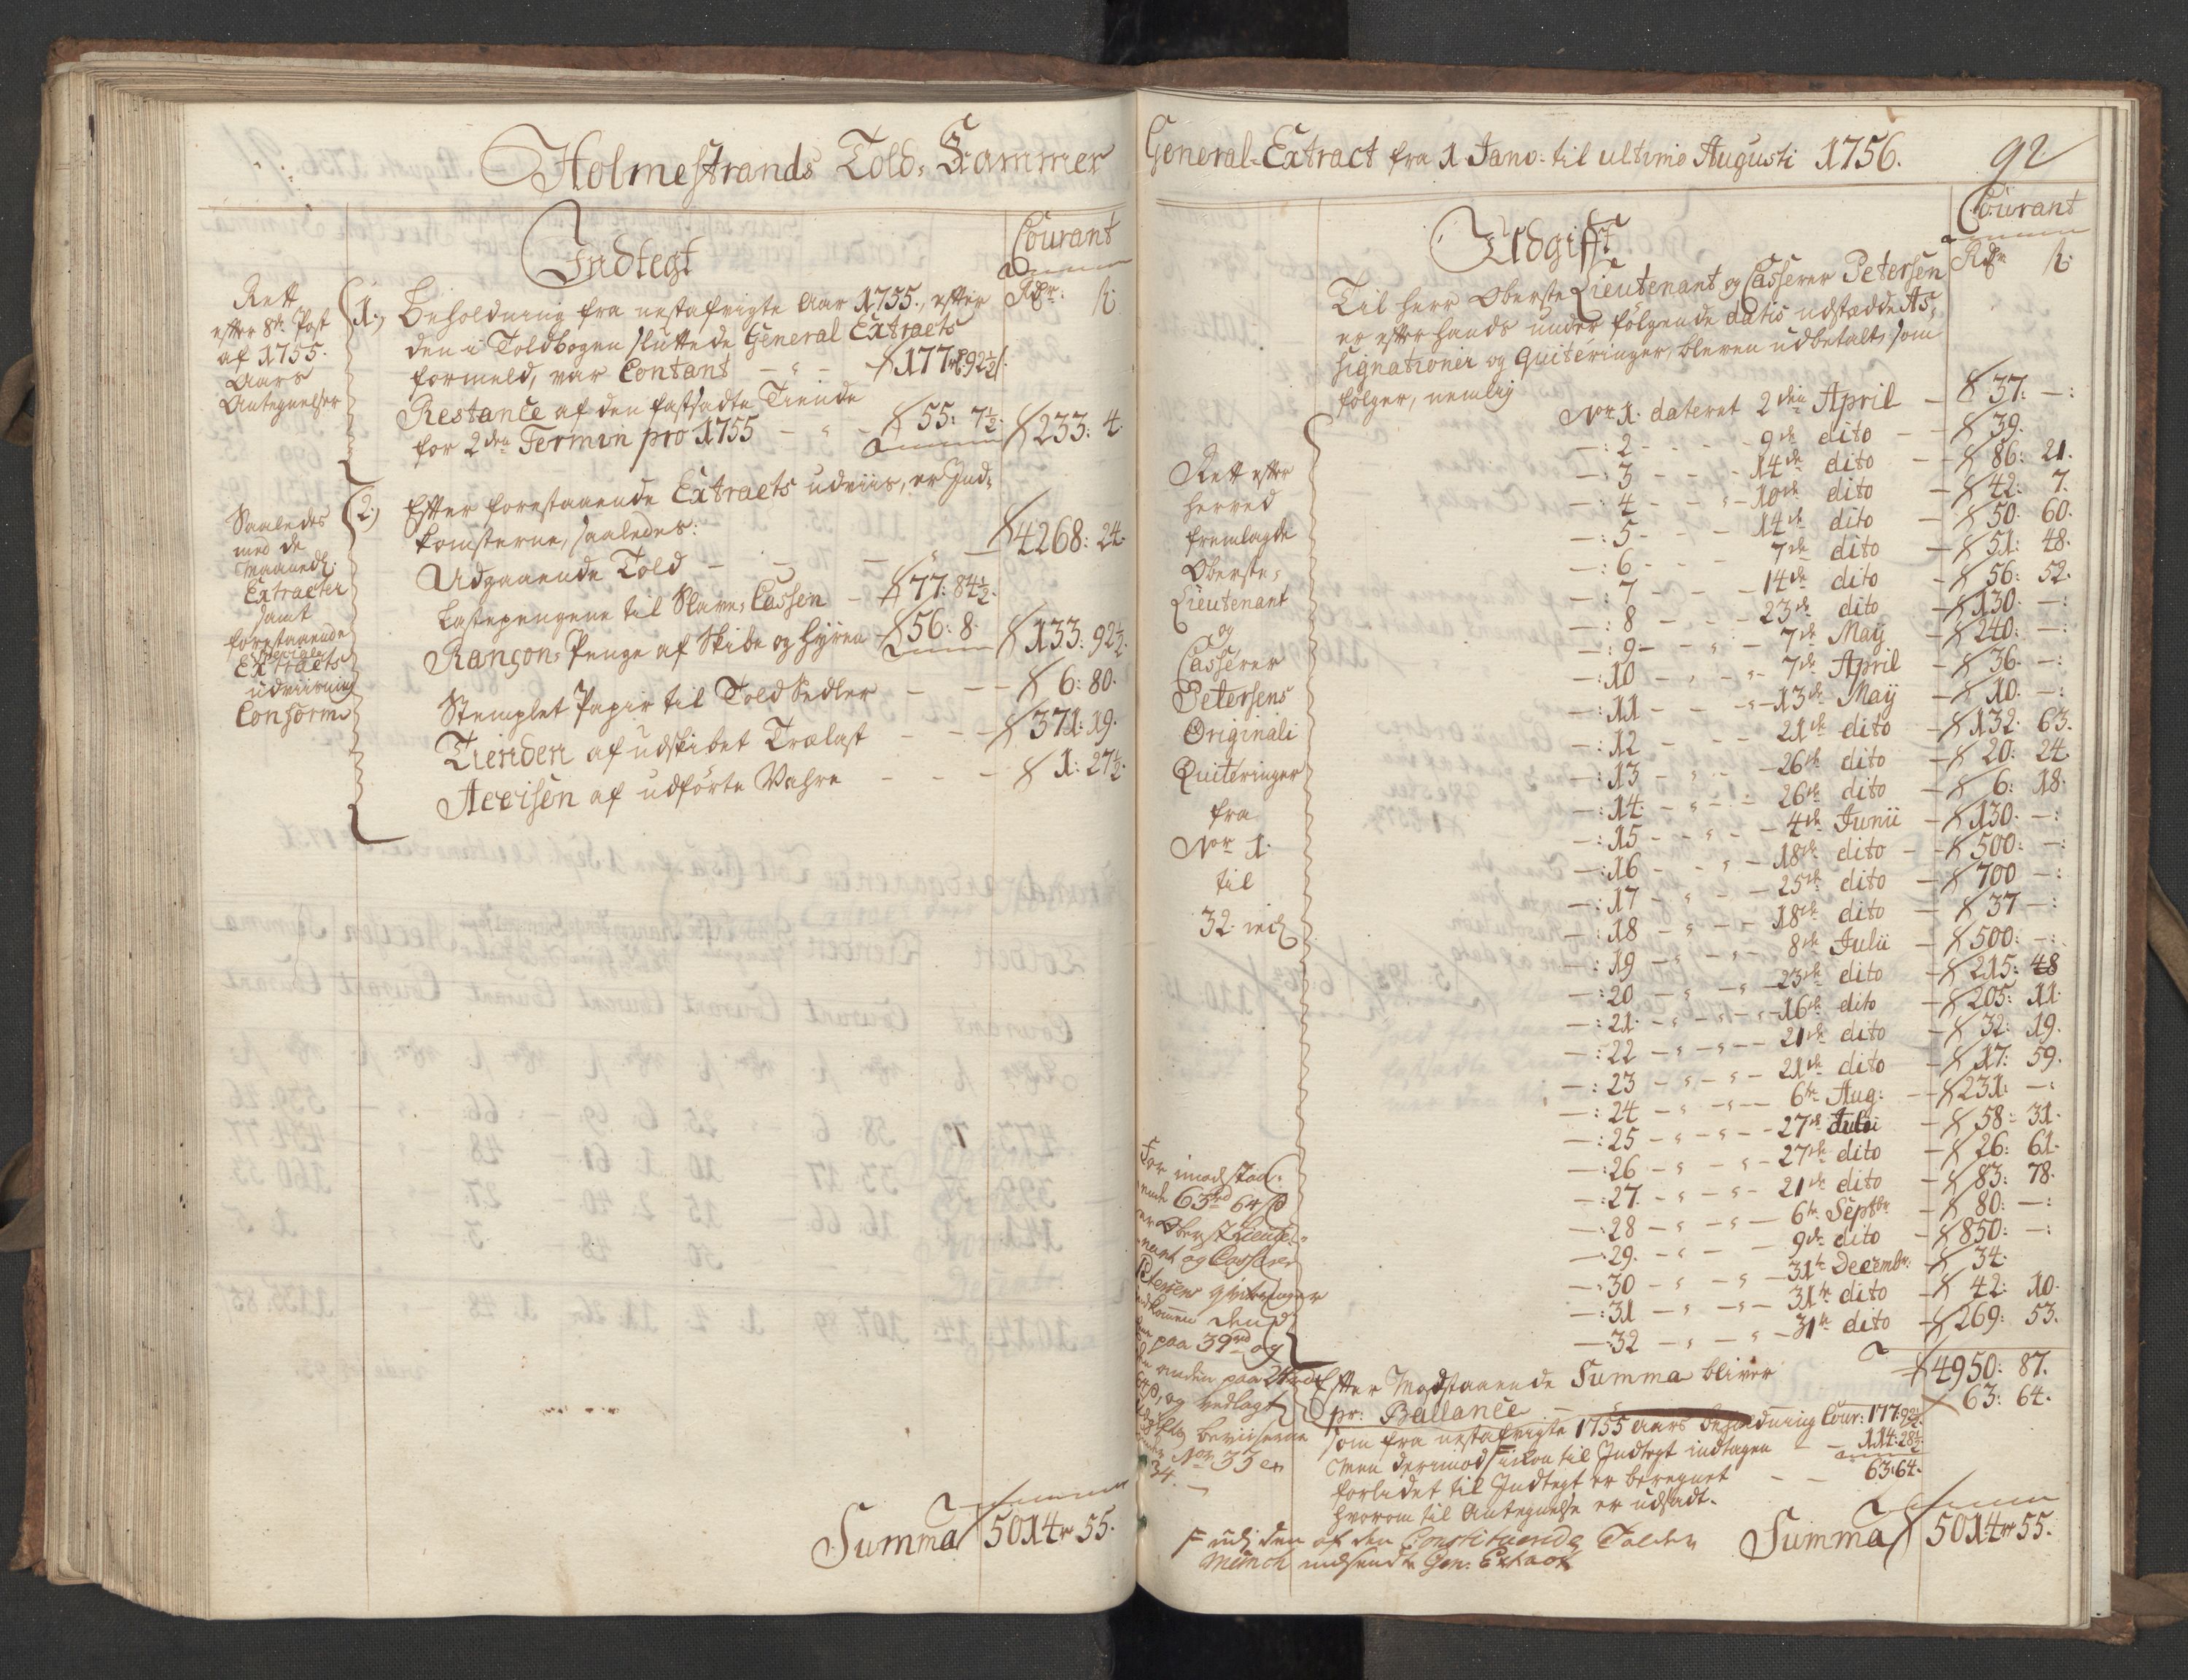 Holmestrands Told-Kammer
Indtegt
Courant
Rdr: ß:
Rett
efter 8de Post
af 1755.
Aars
Antegnelser
1.) Beholdning fra nestafvigte Aar 1755., efter
den i Toldbogen sluttede General Extracts
formeld, var Contant - - 177 92½
Restance af den fastsadte Tiende
for 2den Termin pro 1755 - - 55: 7½. 233: 4.
Saaledes
med de
Maanedl:
Extracter
samt
forestaaende
Extracts
udviisning
Conform
2.) Efter forestaaende Extracts udviis, er Ind-
komsterne, saaledes:
Udgaaende Told - - - 4268: 24.
Lastepengene til Slave-Cassen - 77: 84½.
Rançon-Penge af Skibe og Hyren 56: 8. 133. 92½.
Stemplet Papir til Told Sedler - - - 6: 80.
Tienden af udskibet Trælast - - - 371: 19.
Accisen af udførte Vahre - - - 1: 27½.
Summa 5014 55.
General-Extract fra 1 Janv: til ultimo Augusti 1756. 92
Udgifft
Courant
Rdr ß:
Til Herr Oberste Lieutenant og Casserer Petersen
er efter hands under følgende datis udstædde As-
signationer og Quiteringer, bleven udbetalt, som
følger, nemlig
Nor 1. dateret 2den April - 37: -:
-: 2 - - - 9de dito - - 39.
-: 3 - - - 14de dito - - 86: 21.
-: 4 - - - 10de dito - 42: 7.
-: 5 - - - 14de dito - 50. 60.
-: 6 - - - 7de dito - 51: 48.
-: 7 - - - 14de dito - 56: 52.
-: 8 - - - 23de dito - 130. -:
-: 9 - - - 7de Maÿ - 240: -:
-: 10 - - - 7de April - 36. -:
-: 11 - - - 13de Maÿ - 10. -:
-: 12 - - - 21de dito - 132: 63.
-: 13 - - - 26de dito - 20: 24.
-: 14 - - - 26de dito - 6: 18.
-: 15 - - - 4de Junii - 130. -:
-: 16 - - - 18de dito - 500: -:
-: 17 - - - 25de dito - 700 -:
-: 18 - - - 18de dito - 37 -:
-: 19 - - - 8de Julii - 500: -:
-: 20 - - - 23de dito - 215: 48
-: 21 - - - 16de dito - 205: 11.
-: 22 - - - 21de dito - 32: 19.
-: 23 - - - 21de dito - 17: 59.
-: 24 - - - 6te Aug: - 231: -:
-: 25 - - - 27de Juli - 58: 31.
-: 26 - - - 27de dito - 26: 61.
-: 27. - - - 21de dito - 83: 78.
-: 28 - - - 6te Septbr - 80: -:
-: 29. - - - 9de dito - 850: -:
-: 30 - - - 31te Decembr: 34.
-: 31 - - - 31te dito - 42: 10.
-: 32 - - - 31te dito - 269: 53.
4950: 87.
Rett efter
herved
fremlagde
Oberste-
Lieutenant
og
Casserer
Petersens
Originali
Quiteringer
fra
Nor 1.
til
32. incl
For imodstaa-
ende 63rd 64 ß
er Oberst Lieute-
nant og Casserer
Petersens qvitteringer
paa 39rd og
den anden paa 24rd
64ß, og vedlagt
beviiserne
Nor 33 et
34.
Efter Modstaaende Summa bliver
pr: Ballance - - 63: 64.
som fra nestafvigte 1755 Aars beholdning Cour: 177: 92½.
Men derimod F ikon til Indtegt indtagen - - 114: 28½
forledet til Indtegt er beregnet - - 63: 64.
hvorom til Antegnelse er udsadt.
F udj den af den Constituerede Tolder
Münch indsendte Gen: Extract
Summa 5014 55.